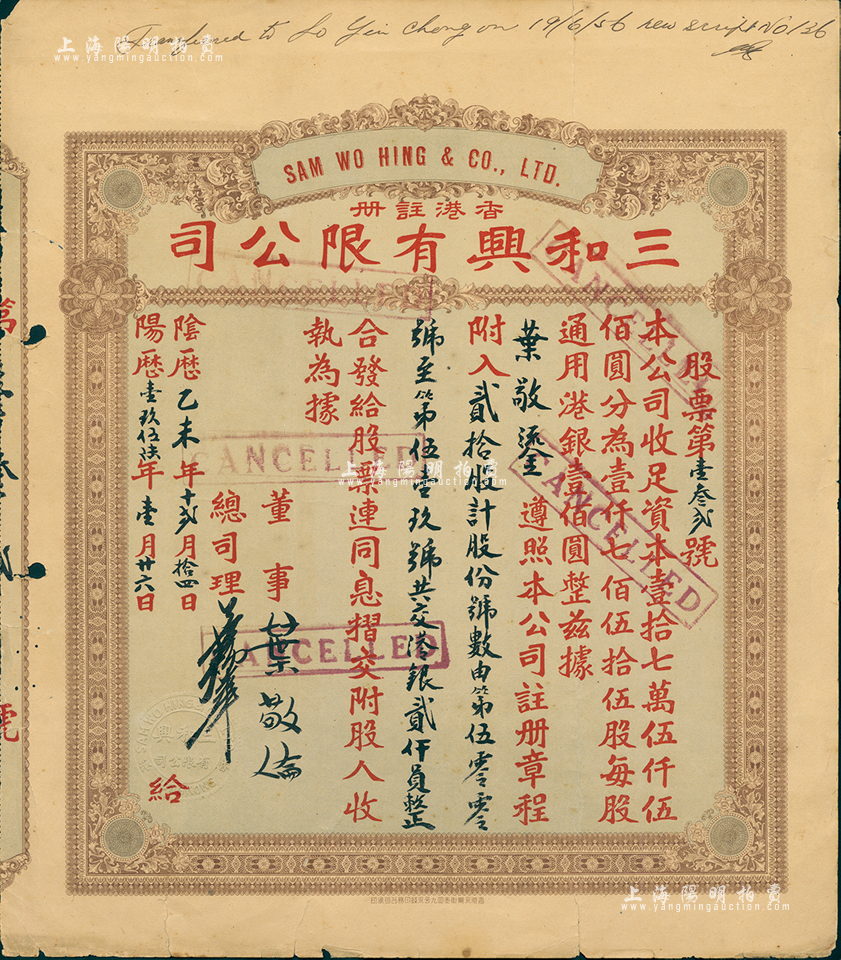 Transferred to Lo Yin Chong on 19/6/56 new script No 136
上海陽明拍賣
www.yangmingauction.com
SAM WO HING & CO., LTD.
冊註港香
司公限有興和三
股票第壹叁貳號
本公司收足資本壹拾七萬伍仟伍
佰圓分為壹仟七佰伍拾伍股每股
通用港銀壹佰圓整茲據
葉敬鎏 遵照本公司註册章程
附入貳拾股計股份號數由第伍零零
號至第伍壹玖號共交港銀貳仟員整
合發給股票連同息摺交附股人收
執為據
董事 葉敬倫
總司理
陰歷乙未年十弍月拾四日
陽歷壹玖伍陸年壹月廿六日
給
CANCELLED
CANCELLED
CANCELLED
CANCELLED
CANCELLED
上海陽明拍賣
www.yangmingauction.com
上海陽明拍賣
www.yangmingauction.com
第
號